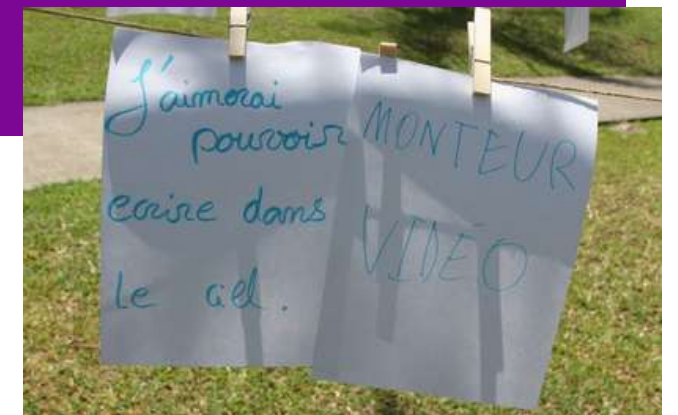 J'aimerai
pouvoir
ecrire dans
le ciel.
MONTEUR
VIDÉO